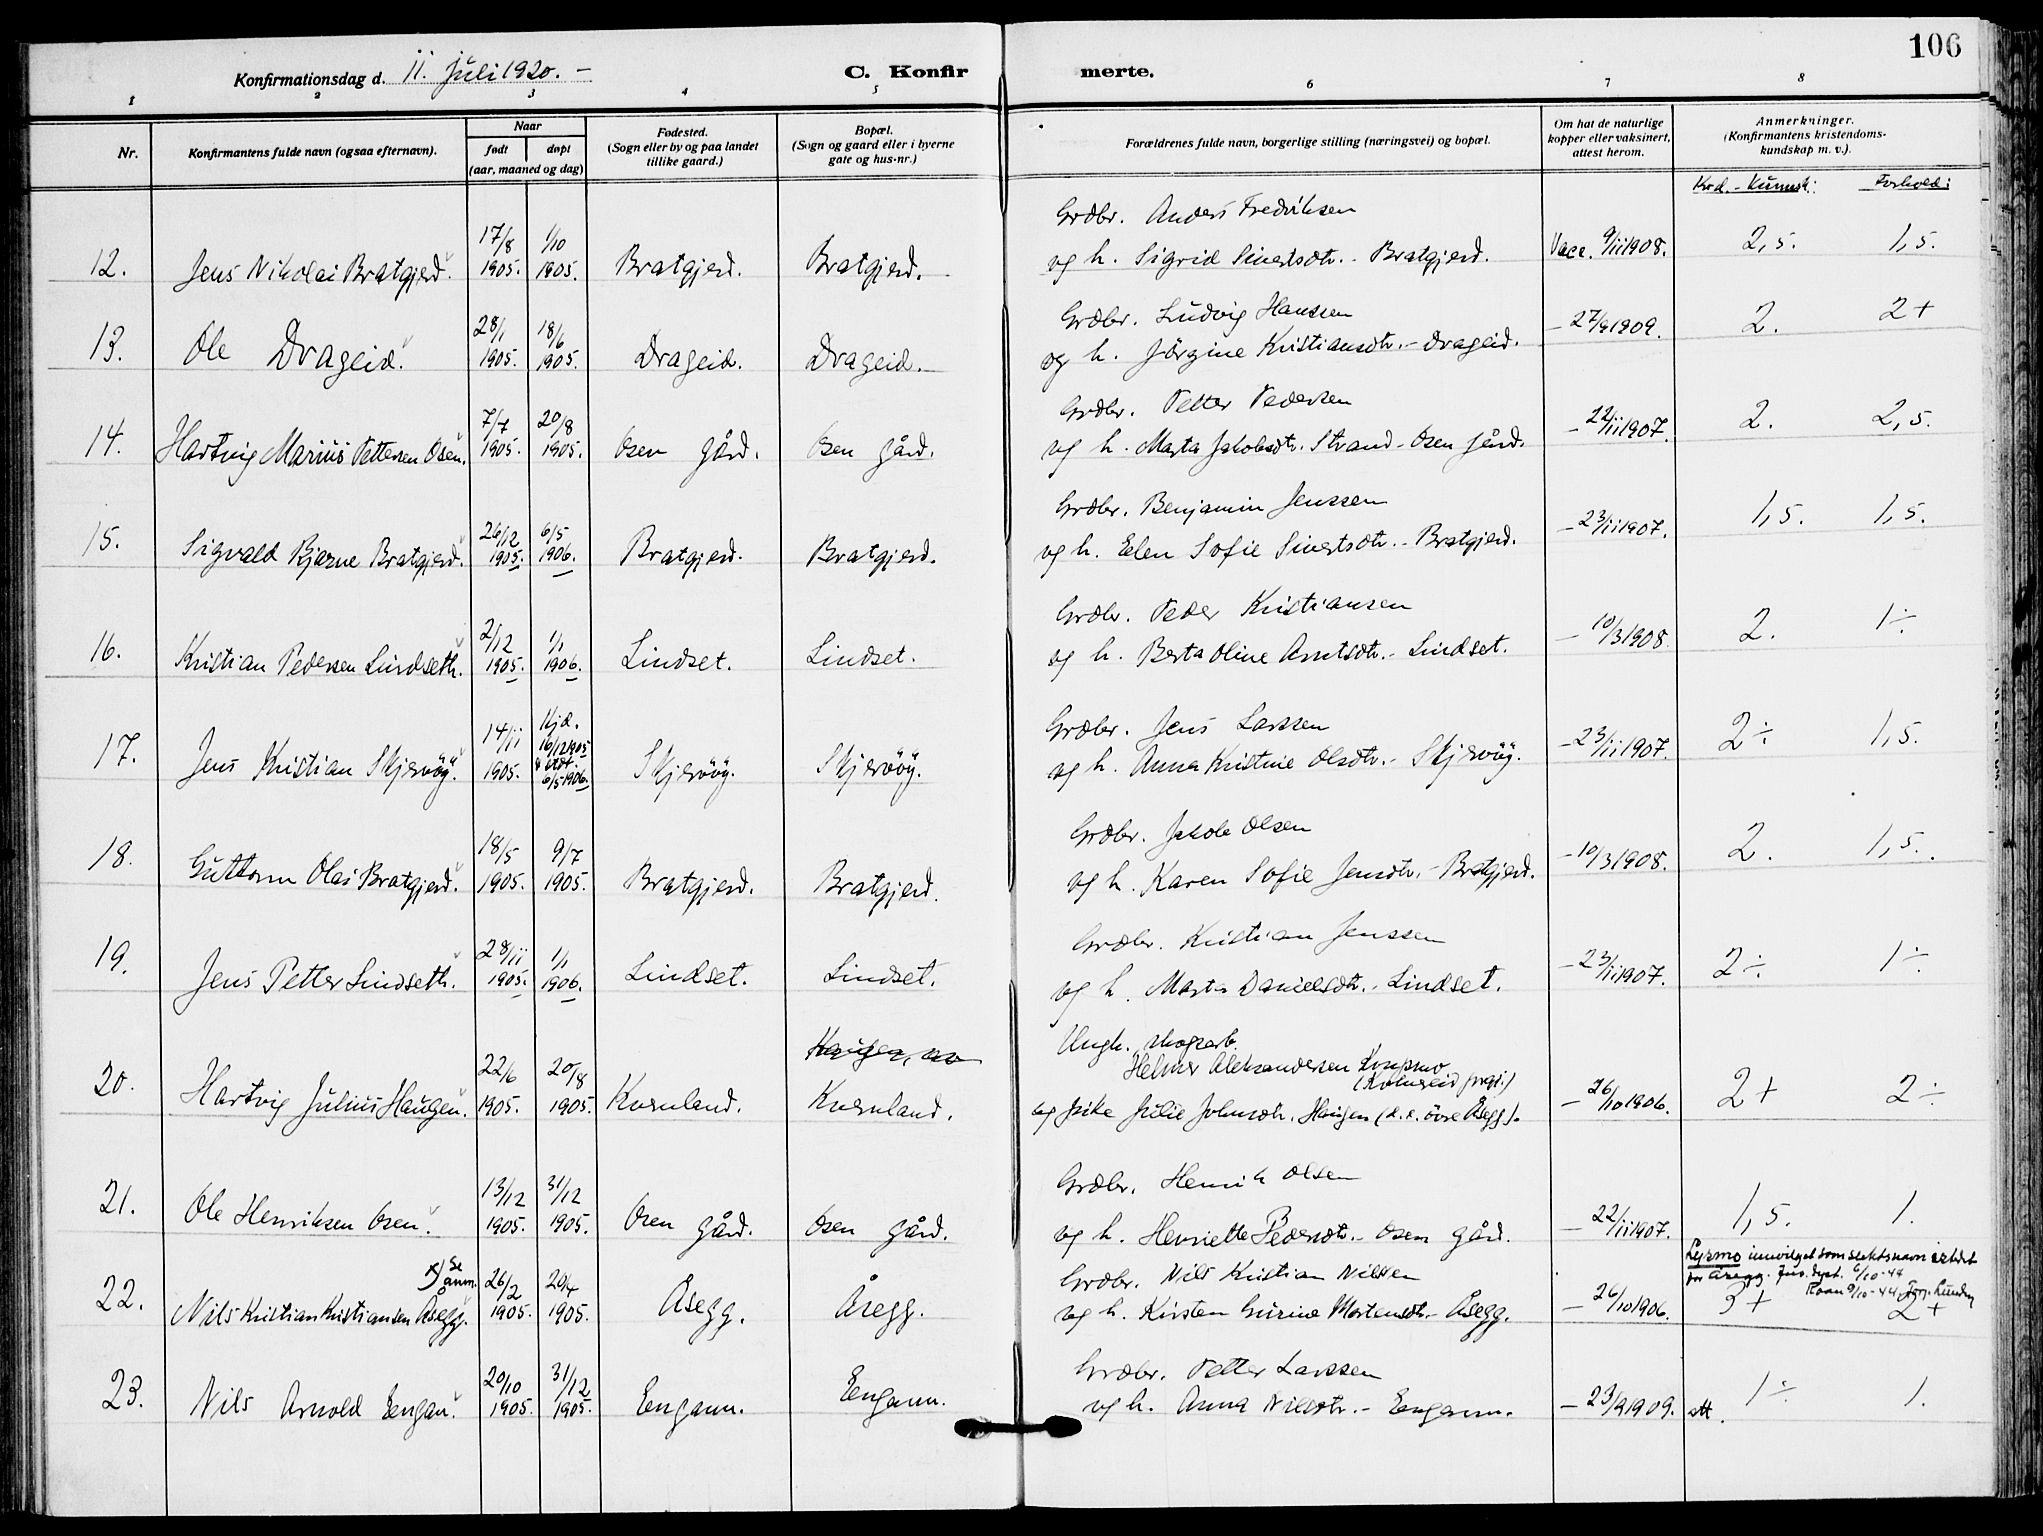 106
Konfirmationsdag d. 11. Juli 1920. –
C. Konfir merte.
1 2 3 4 5 6 7 8
Nr.
Konfirmantens fulde navn (ogsaa efternavn).
Naar
født
døpt
(aar, maaned og dag)
Fødested.
(Sogn eller by og paa landet
tillike gaard.)
Bopæl.
(Sogn og gaard eller i byerne
gate og hus-nr.)
Forældrenes fulde navn, borgerlige stilling (næringsvei) og bopæl.
Om hat de naturlige
kopper eller vaksinert,
attest herom.
Anmerkninger.
(Konfirmantens kristendoms-
kundskap m. v.).
Krd. - Kunnsk: Forhold:
Grdbr. Anders Fredriksen
12. Jens Nikolai Bratgjerd. 17/8 1905. 1/10 1905. Bratgjerd. Bratgjerd. og h. Sigrid Sivertsdtr. - Bratgjerd. Vacc. 9/11 1908. 2,5. 1,5.
Grdbr. Ludvig Hanssen
13. Ole Drageid. 28/1 1905. 18/6 1905. Drageid. Drageid. og h. Jörgine Kristiansdtr. - Drageid. – 27/9 1909. 2. 2+
Grdbr. Petter Pedersen
14. Hartvig Marius Pettersen Osen. 7/7 1905. 20/8 1905. Osen gård. Osen gård. og h. Marta Jakobsdtr. Strand - Osen gård. – 22/11 1907. 2. 2,5.
Grdbr. Benjamin Jenssen
15. Sigvald Bjarne Bratgjerd. 26/12 1905. 6/5 1906. Bratgjerd. Bratgjerd. og h. Elen Sofie Sivertsdtr. - Bratgjerd. – 23/11 1907. 1,5. 1,5.
Grdbr. Peder Kristiansen
16. Kristian Pedersen Lindseth. 2/12 1905. 1/1 1906. Lindset. Lindset. og h. Berta Oline Arntsdtr. - Lindset. – 10/3 1908. 2. 1÷
Grdbr. Jens Larssen
17. Jens Kristian Skjervöy. 14/11 1905. Hjd. 16/12 1905 6/5 1906. Skjervöy. Skjervöy. og h. Anna Kristine Olsdtr. - Skjervöy. – 23/11 1907. 2÷ 1,5.
Grdbr. Jakob Olsen
18. Guttorm Olai Bratgjerd. 18/5 1905. 9/7 1905. Bratgjerd. Bratgjerd. og h. Karen Sofie Jensdtr. - Bratgjerd. – 10/3 1908. 2. 1,5.
Grdbr. Kristian Jenssen
19. Jens Petter Lindseth. 28/11 1905. 1/1 1906. Lindset. Lindset. og h. Marta Danielsdtr. - Lindset. – 23/11 1907. 2÷ 1÷
Haugen,
Ungk. skogsarb.
Helmer Aleksandersen
20. Hartvig Julius Haugen. 22/6 1905. 20/8 1905. Kvernland. Kvernland. og pike Julie Johnsdtr. Haugen (d. e. övre Åsegg). – 26/10 1906. 2+ 2÷
Grdbr. Henrik Olsen
21. Ole Henriksen Osen. 13/12 1905. 31/12 1905. Osen gård. Osen gård. og h. Henriette Pedersdtr. - Osen gård. – 22/11 1907. 1,5. 1.
Lysmo innvilget som slektsnavn istedet
for Åsegg. Jus. dept. 6/10-44
Roan 9/10-44
x) Se anm.
Grdbr. Nils Kristian Nilsen
22. Nils Kristian Kristiansen Åsegg. 26/2 1905. 20/4 1905. Åsegg. Åsegg. og h. Kirsten Gurine Mortensdtr. - Åsegg. – 26/10 1906. 3+ 2+
Grdbr. Petter Larssen
23. Nils Arnold Eengan. 20/10 1905. 31/12 1905. Engann. Eengann. og h. Anna Nilsdtr. - Eengann. – 23/9 1909. att. 1÷ 1.